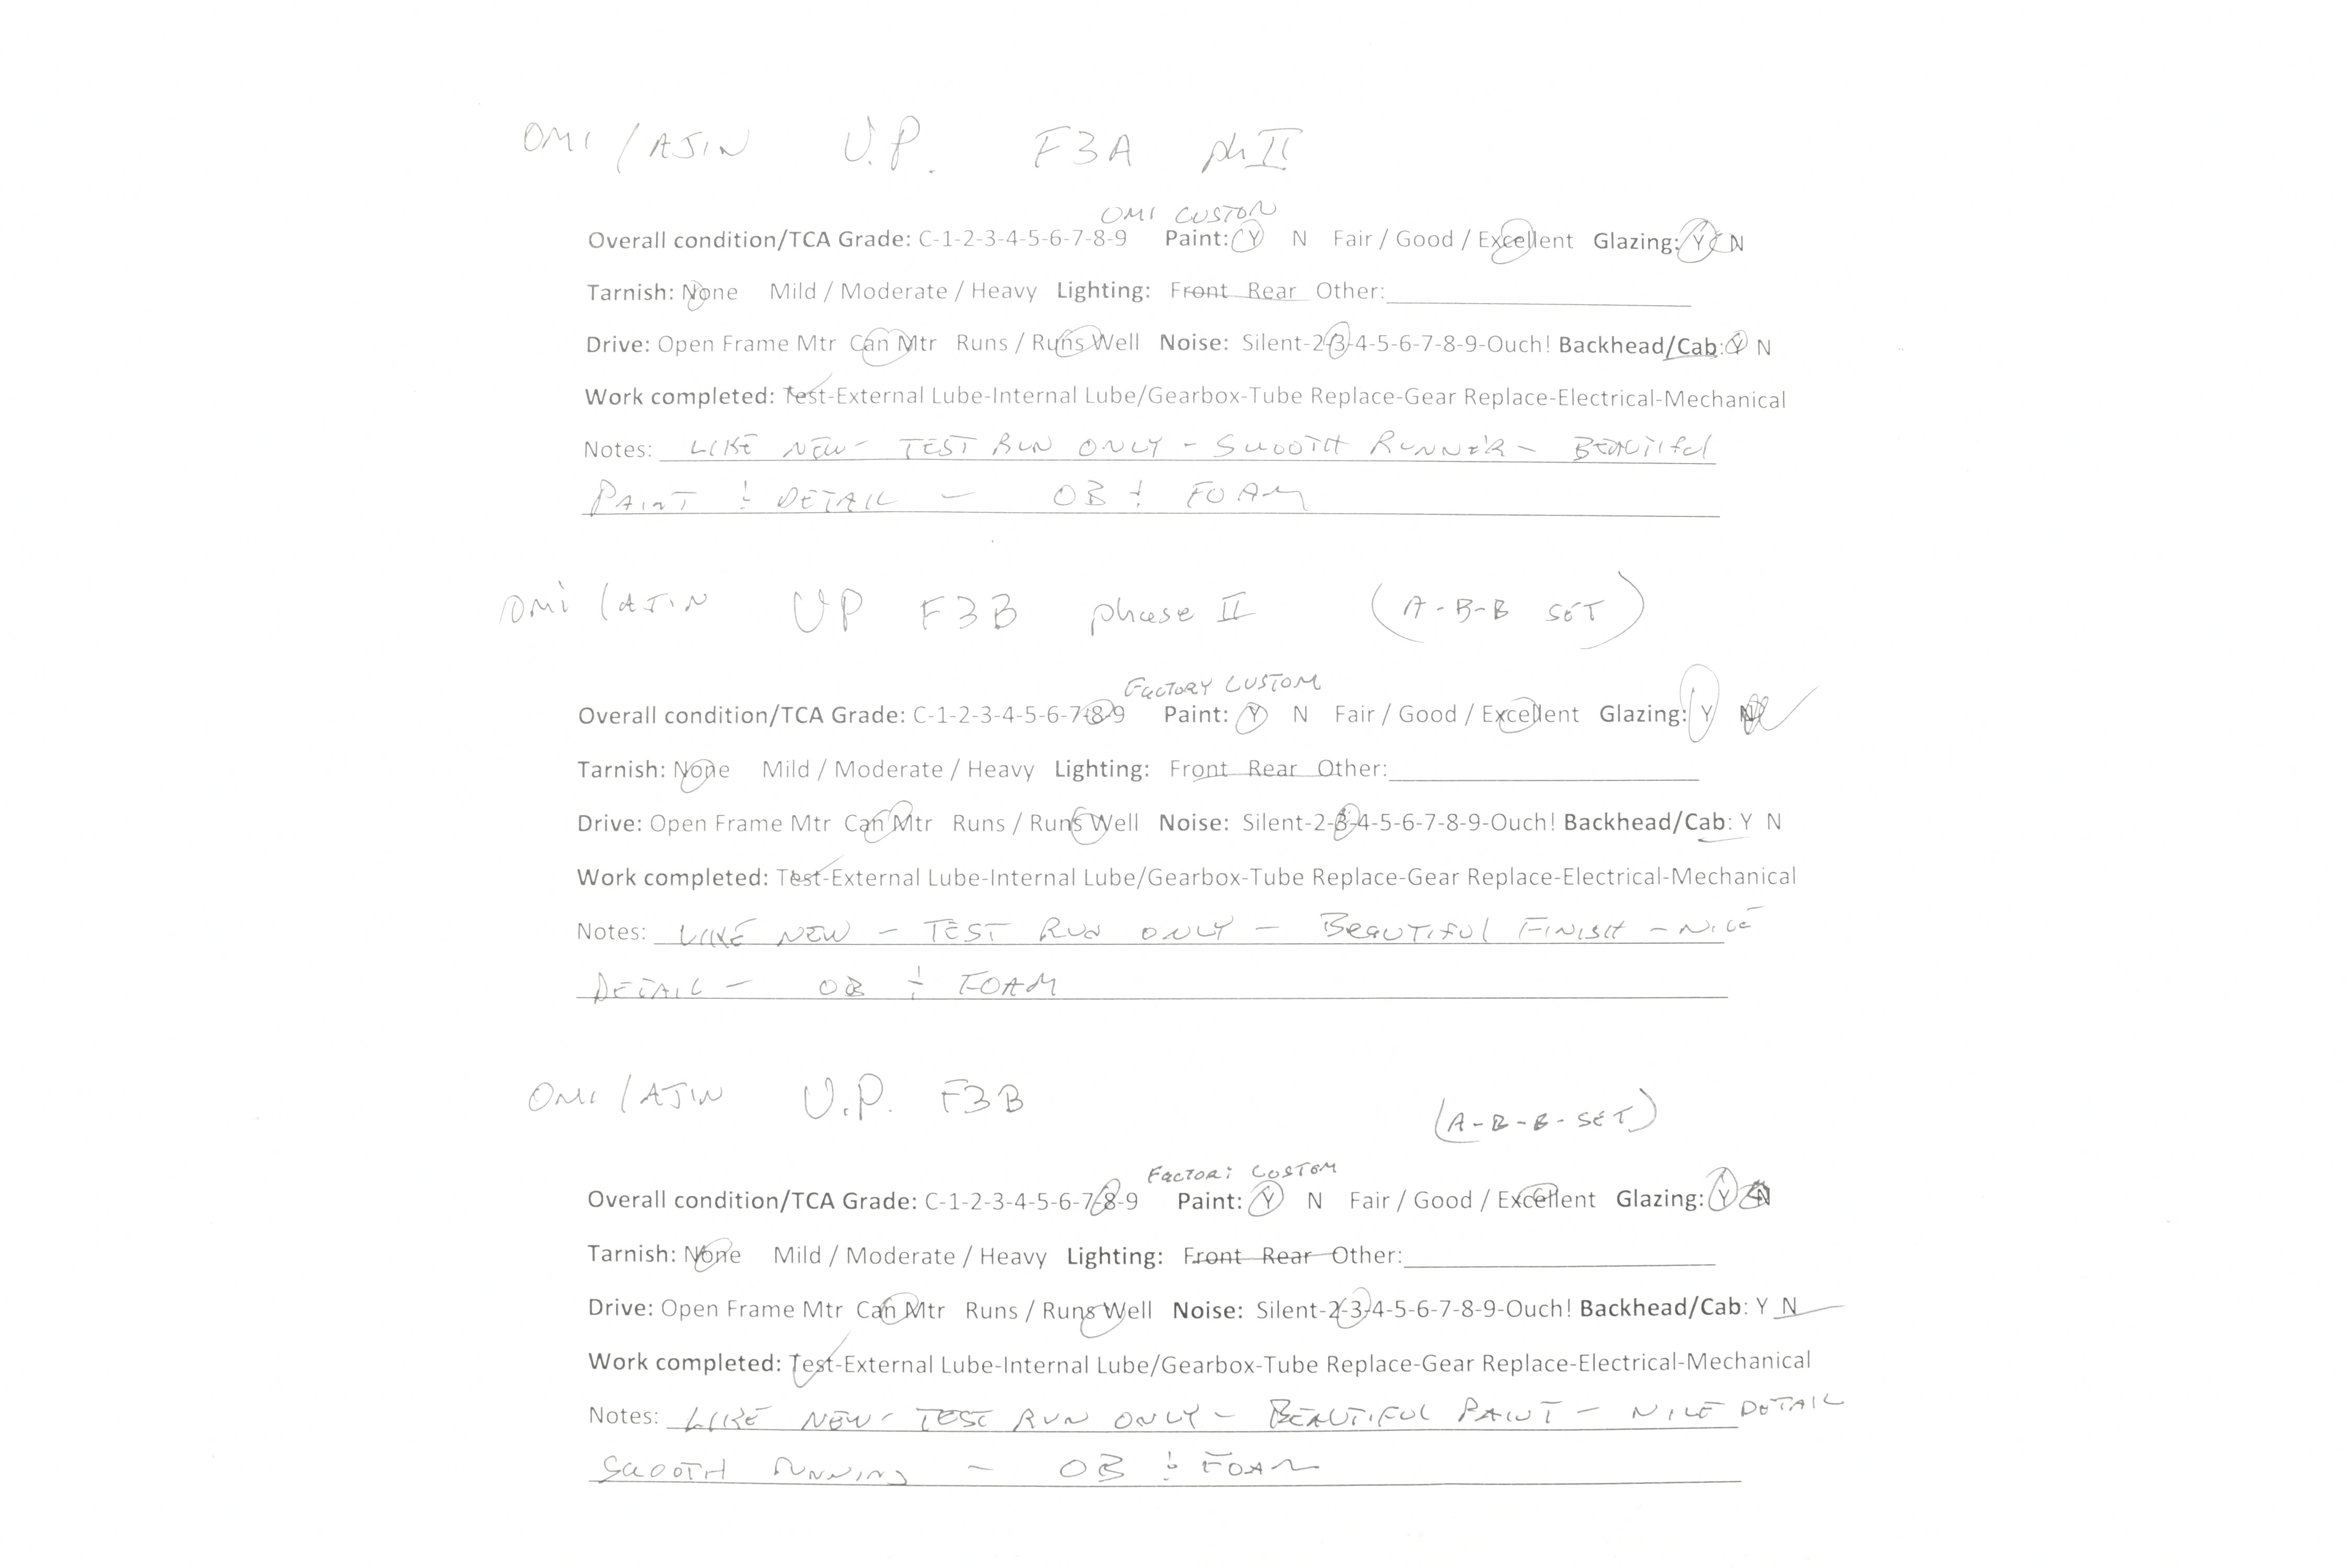 OMI / AJIN U.P. F3A ph II
OMI CUSTOM
Overall condition/TCA Grade: C-1-2-3-4-5-6-7-8-9 Paint: Y N Fair / Good / Excellent Glazing: Y N
Tarnish: None Mild / Moderate / Heavy Lighting: Front Rear Other:
Drive: Open Frame Mtr Can Mtr Runs / Runs Well Noise: Silent-2-3-4-5-6-7-8-9-Ouch! Backhead/Cab: Y N
Work completed: Test-External Lube-Internal Lube/Gearbox-Tube Replace-Gear Replace-Electrical-Mechanical
Notes: LIKE NEW - TEST RUN ONLY - SMOOTH RUNNER - BEAUTIFUL
PAINT & DETAIL - OB & FOAM
OMI / AJIN UP F3B phase II (A-B-B SET)
FACTORY CUSTOM
Overall condition/TCA Grade: C-1-2-3-4-5-6-7-8-9 Paint: Y N Fair / Good / Excellent Glazing: Y N
Tarnish: None Mild / Moderate / Heavy Lighting: Front Rear Other:
Drive: Open Frame Mtr Can Mtr Runs / Runs Well Noise: Silent-2-3-4-5-6-7-8-9-Ouch! Backhead/Cab: Y N
Work completed: Test-External Lube-Internal Lube/Gearbox-Tube Replace-Gear Replace-Electrical-Mechanical
Notes: LIKE NEW - TEST RUN ONLY - BEAUTIFUL FINISH - NICE
DETAIL - OB & FOAM
OMI / AJIN U.P. F3B (A-B-B-SET)
FACTORY CUSTOM
Overall condition/TCA Grade: C-1-2-3-4-5-6-7-8-9 Paint: Y N Fair / Good / Excellent Glazing: Y N
Tarnish: None Mild / Moderate / Heavy Lighting: Front Rear Other:
Drive: Open Frame Mtr Can Mtr Runs / Runs Well Noise: Silent-2-3-4-5-6-7-8-9-Ouch! Backhead/Cab: Y N
Work completed: Test-External Lube-Internal Lube/Gearbox-Tube Replace-Gear Replace-Electrical-Mechanical
Notes: LIKE NEW - TEST RUN ONLY - BEAUTIFUL PAINT - NICE DETAIL
SMOOTH RUNNING - OB & FOAM